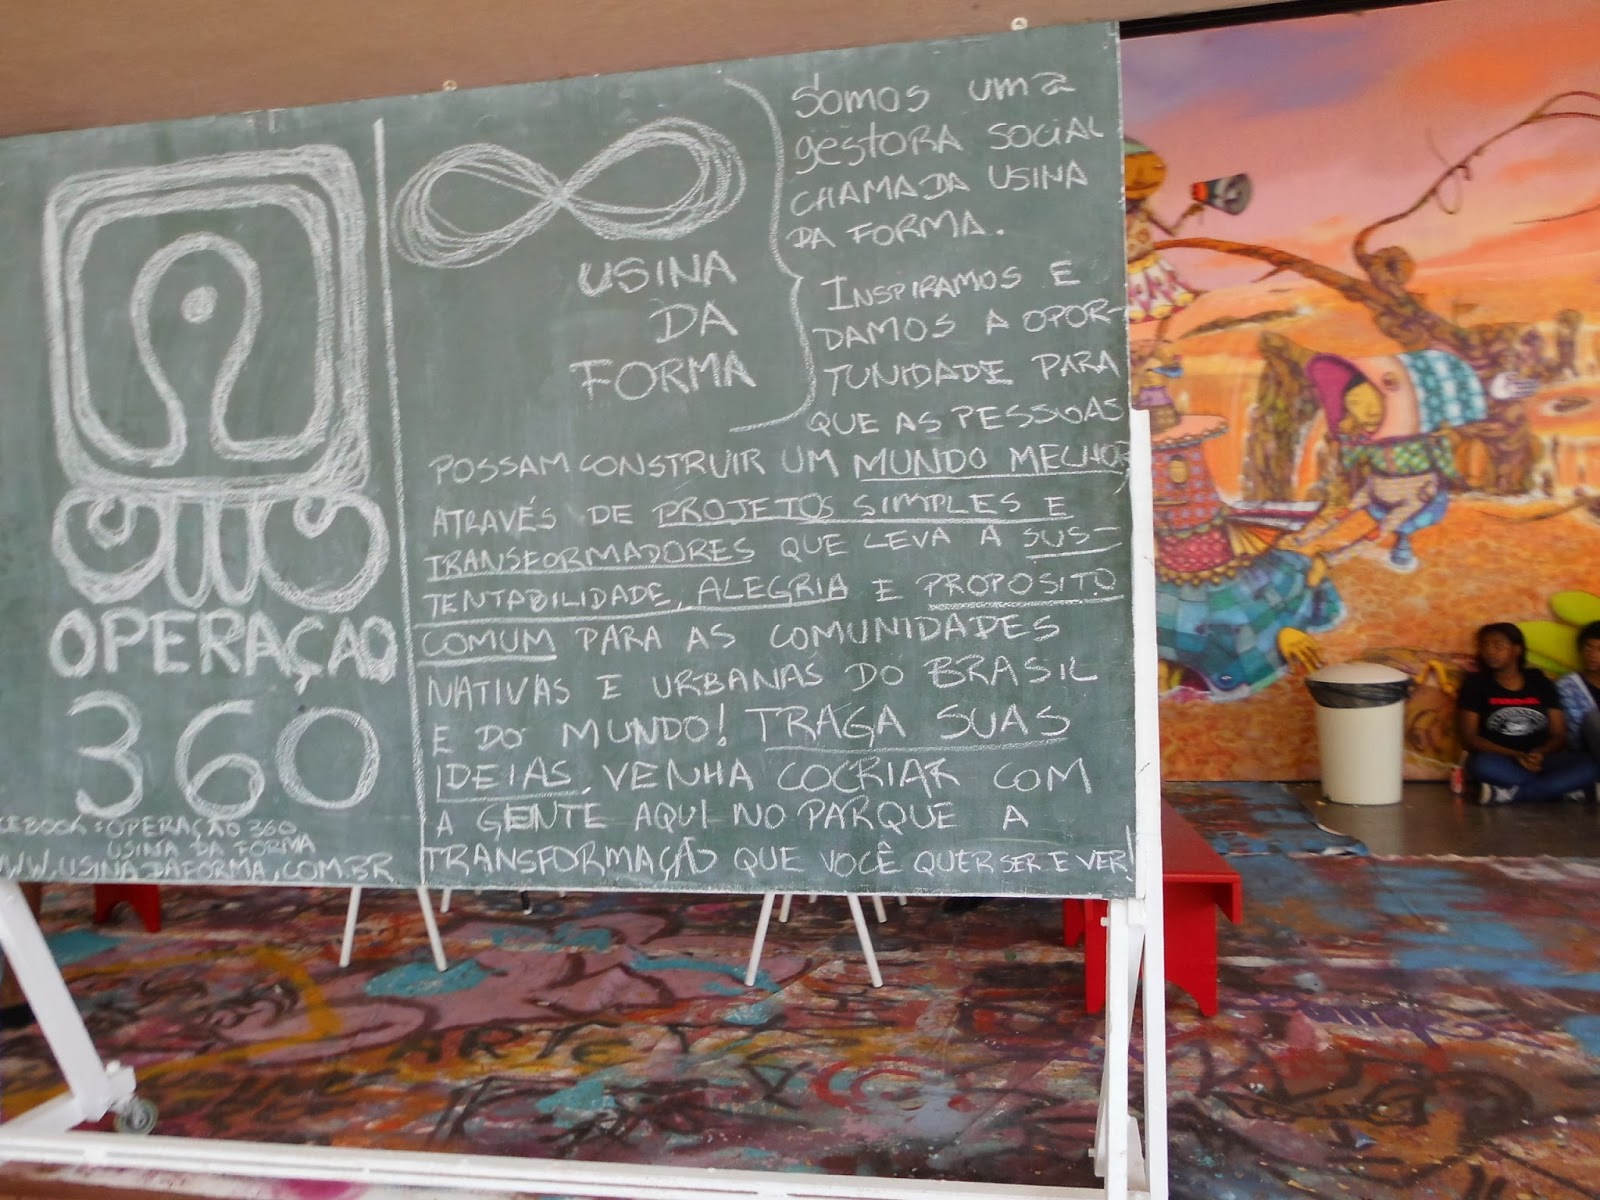 OPERAÇÃO
360
OPERAÇÃO 360
USINA DA FORMA
WWW.USINADAFORMA.COM.BR
USINA
DA
FORMA
Somos uma
gestORA SOCIAL
CHAMADA USINA
DA FORMA.
INSPIRAMOS E
DAMOS A OPOR-
TUNIDADE PARA
QUE AS PESSOAS
POSSAM CONSTRUIR UM MUNDO MELHOR
ATRAVÉS DE PROJETOS SIMPLES E
TRANSFORMADORES QUE LEVA A SUS-
TENTABILIDADE, ALEGRIA E PROPOSITO
COMUM PARA AS COMUNIDADES
NATIVAS E URBANAS DO BRASIL
E DO MUNDO! TRAGA SUAS
IDEIAS, VENHA COCRIAR COM
A GENTE AQUI NO PARQUE A
TRANSFORMAÇÃO QUE VOCÊ QUER SER E VER!